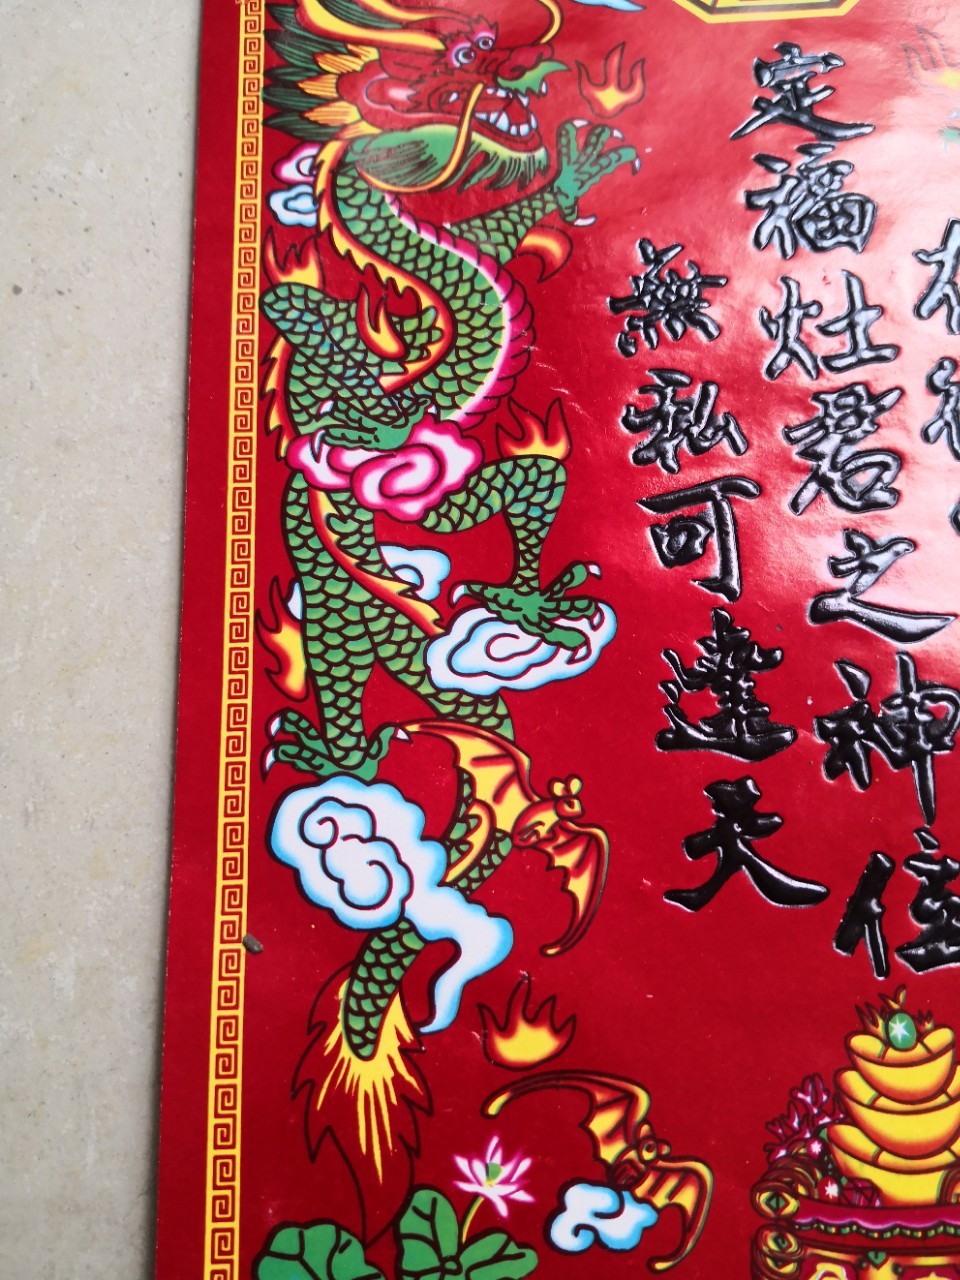 定福灶君之神位
無私可達天